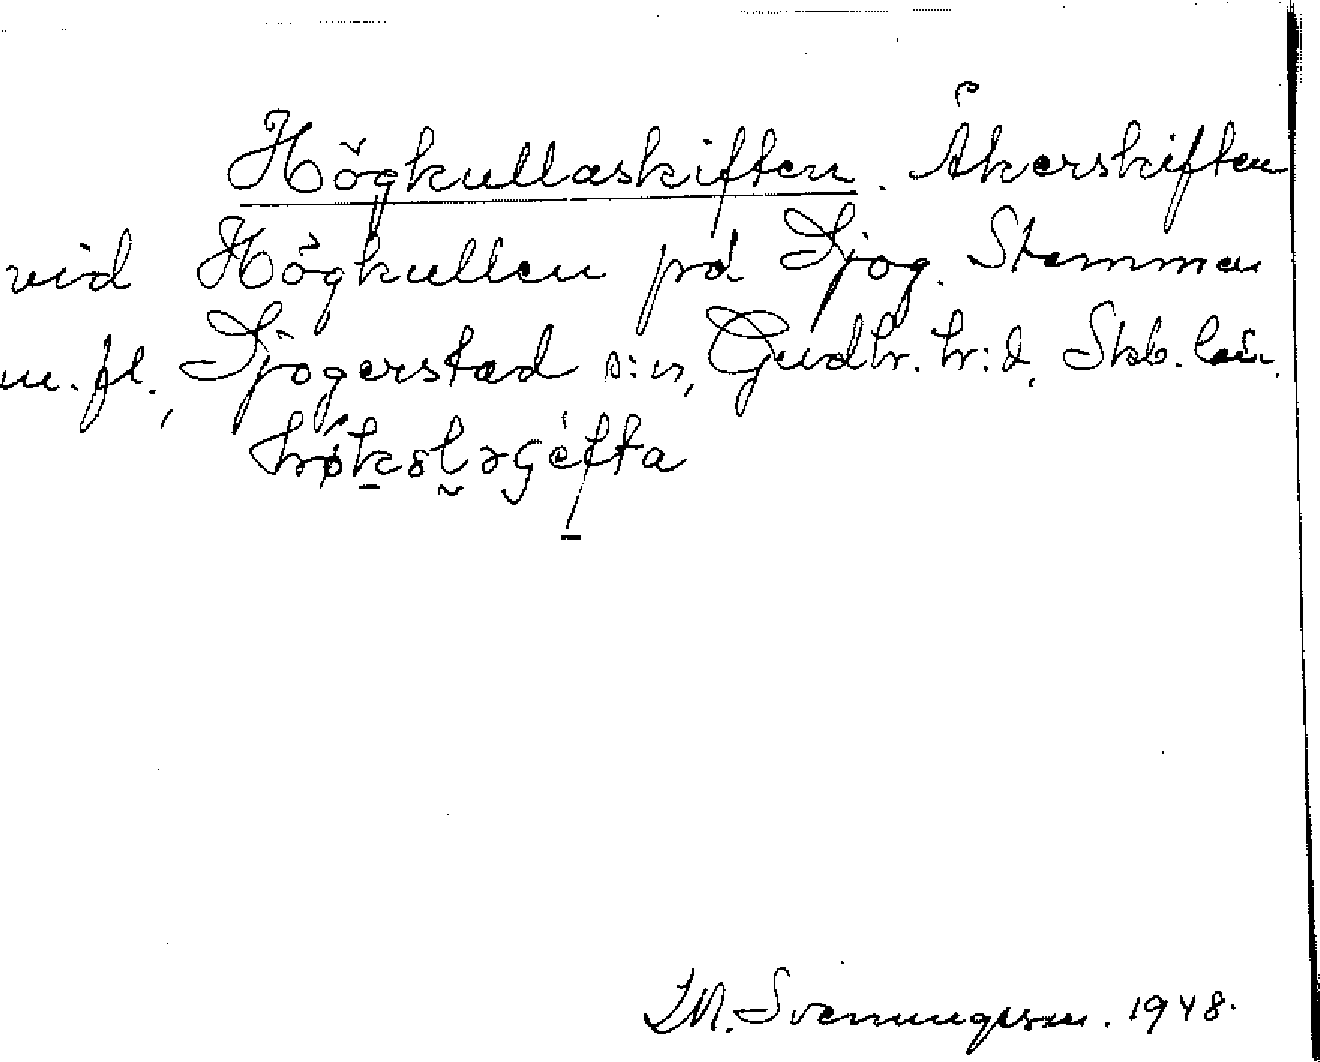 Högkullaskiften. Åkerskiften
vid Högkullen på Sjog. Stommen
m. fl., Sjogerstad s:n, Gudh. h:d, Skb. län.
Svenungsson. 1948.